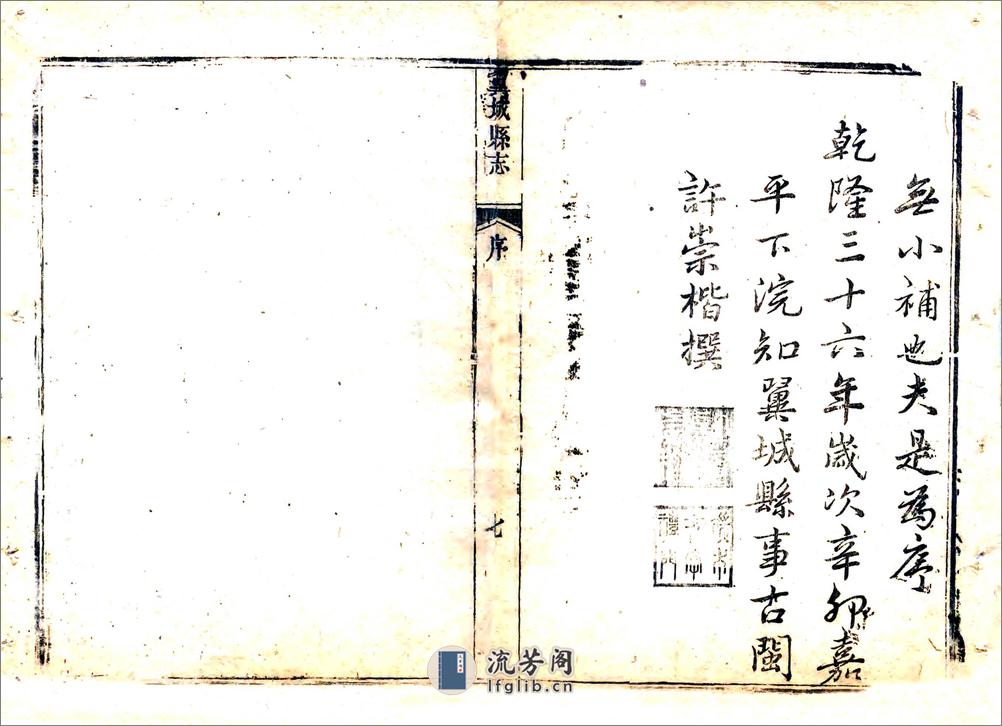 無小補也夫是為序
乾隆三十六年歲次辛卯嘉
平下浣知翼城縣事古閩
許崇楷撰
翼城縣志
序
七
流芳阁
lfglib.cn